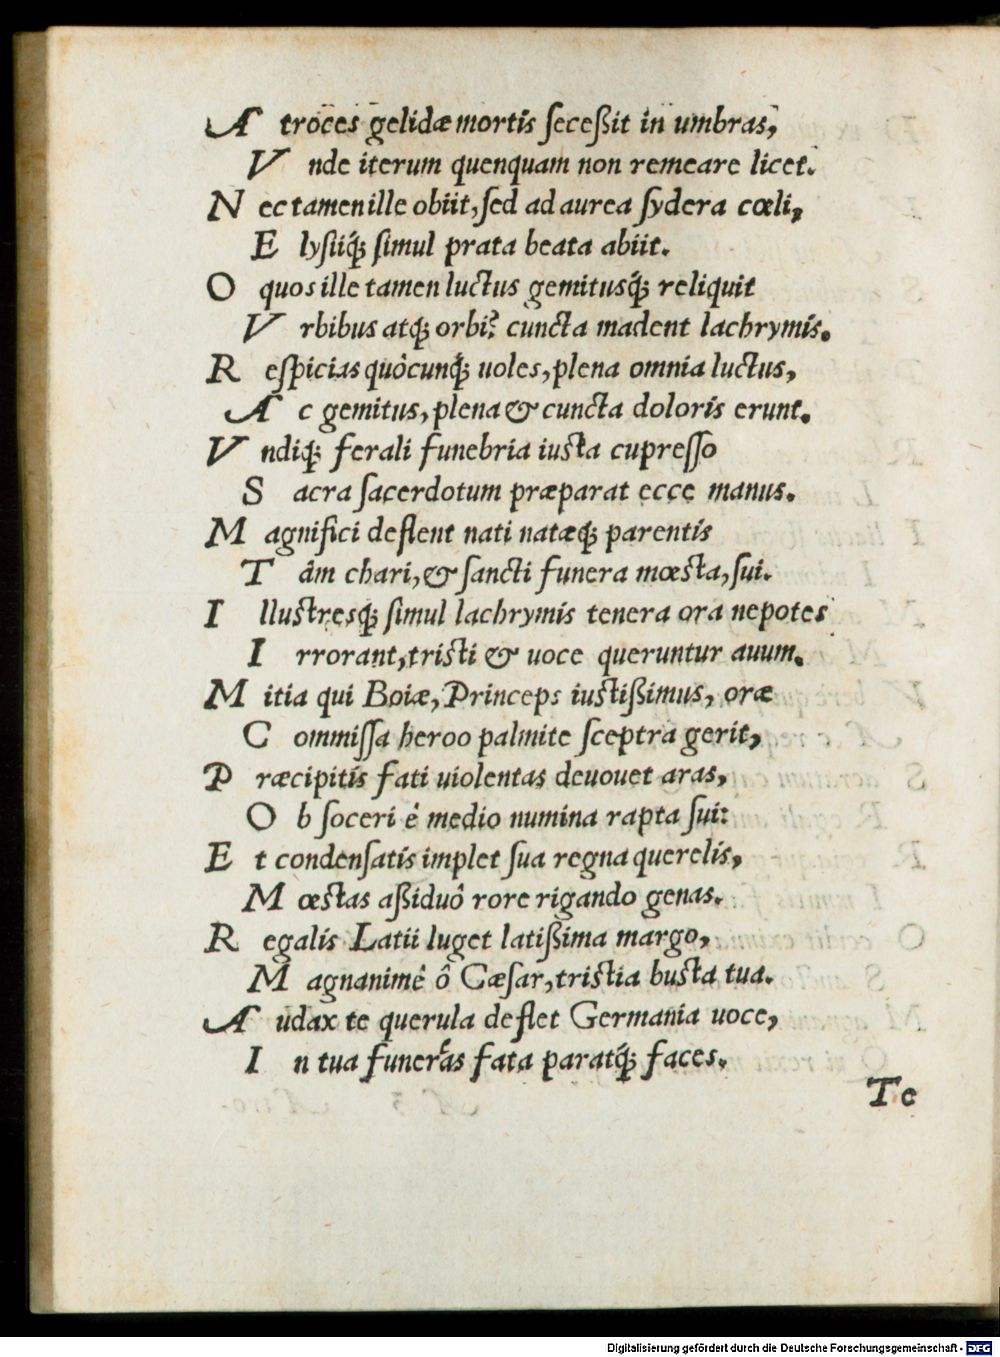 Atroces gelidæ mortis ſeceßit in umbras,
Vnde iterum quenquam non remeare licet.
Nec tamen ille obiit, ſed ad aurea ſydera cœli,
Elyſiiq́ꝫ ſimul prata beata abiit.
O quos ille tamen luctus gemitusq́ꝫ reliquit
Vrbibus atq́ꝫ orbi? cuncta madent lachrymis.
Reſpicias quòcunq́ꝫ uoles, plena omnia luctus,
Ac gemitus, plena & cuncta doloris erunt.
Vndiq́ꝫ ferali funebria iusta cupreſſo
Sacra ſacerdotum præparat ecce manus.
Magnifici deflent nati natæq́ꝫ parentis
Tâm chari, & ſancti funera mœsta, ſui.
Illustresq́ꝫ ſimul lachrymis tenera ora nepotes
Irrorant, tristi & uoce queruntur auum.
Mitia qui Boiæ, Princeps iustißimus, oræ
Commiſſa heroo palmite ſceptra gerit,
Præcipitis fati uiolentas deuouet aras,
Ob ſoceri è medio numina rapta ſui:
Et condenſatis implet ſua regna querelis,
Mœstas aßiduô rore rigando genas.
Regalis Latii luget latißima margo,
Magnanimê ô Cæſar, tristia busta tua.
Audax te querula deflet Germania uoce,
In tua funeràs fata paratq́ꝫ faces.
Te
Digitalisierung gefördert durch die Deutsche Forschungsgemeinschaft - DFG